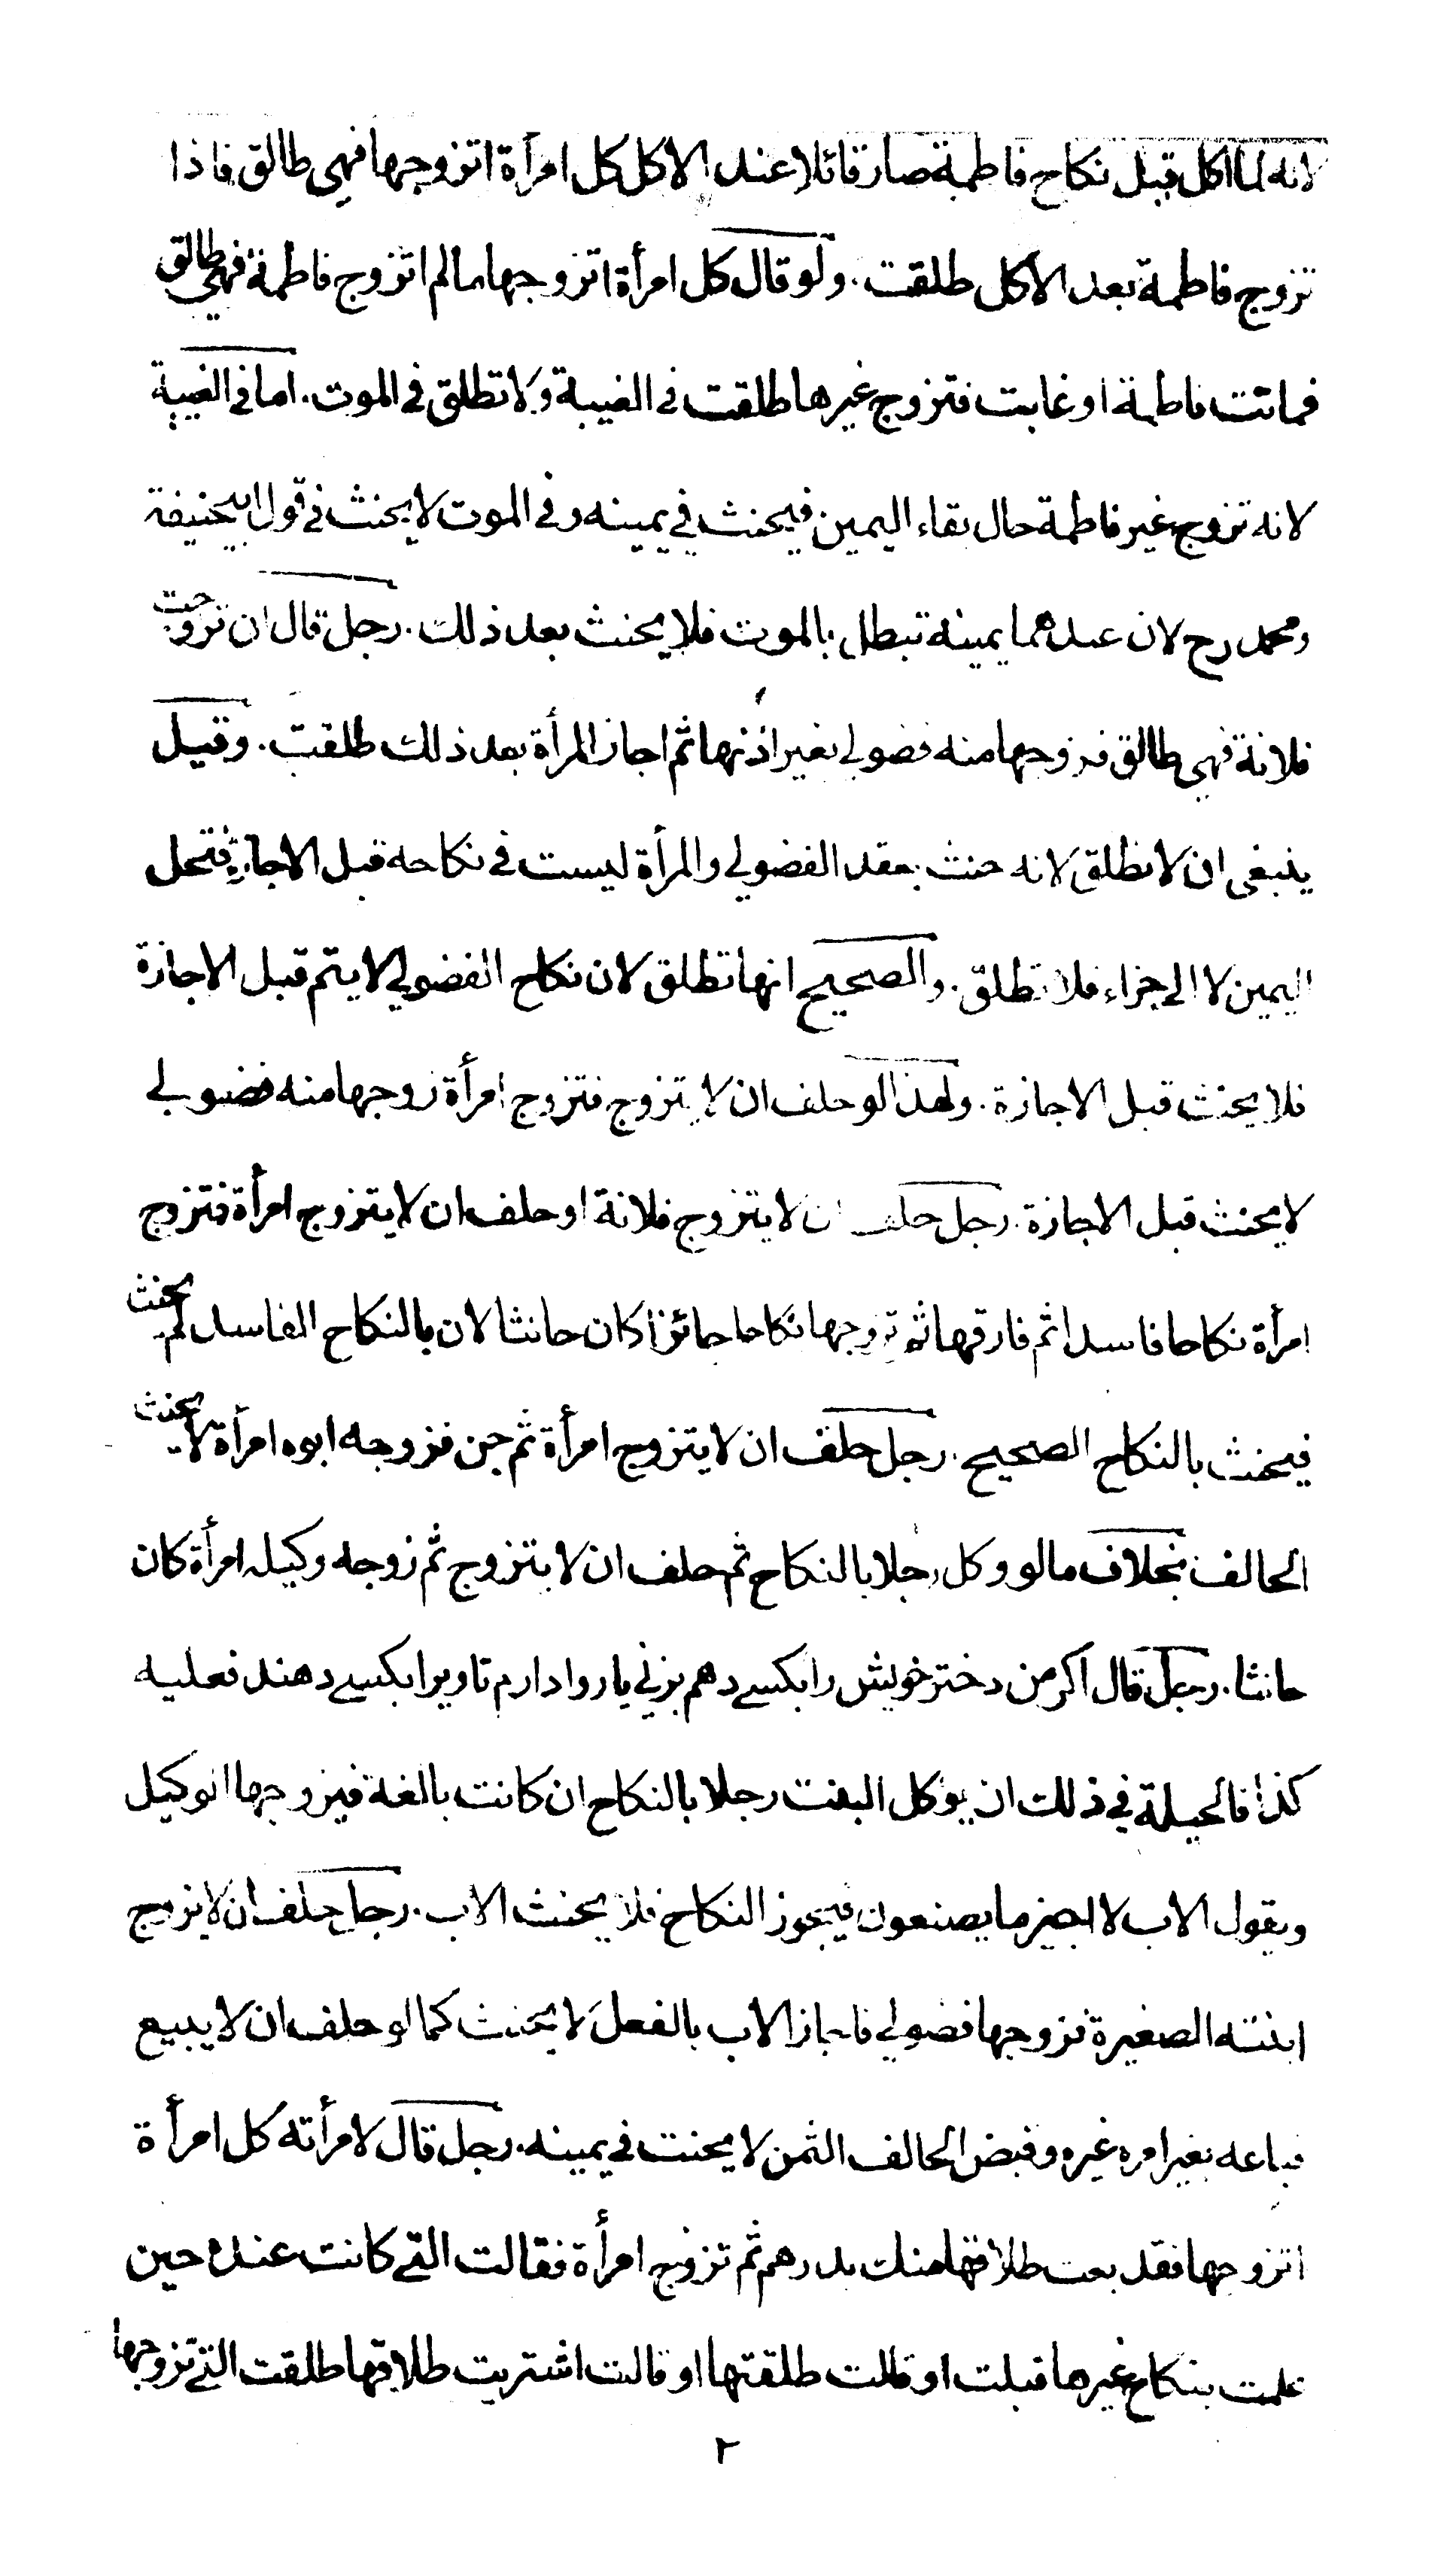 لانه لما اكل قبل نكاح فاطمة صار قائلا عند الاكل كل امرأة اتزوجها فهي طالق فاذا
تزوج فاطمة بعد الاكل طلقت. ولو قال كل امرأة اتزوجها مالم اتزوج فاطمة فهي طالق
فماتت فاطمة او غابت فتزوج غيرها طلقت في الغيبة ولا تطلق في الموت. اما في الغيبة
لانه تزوج غير فاطمة حال بقاء اليمين فيحنث في يمينه وفي الموت لا يحنث في قول ابيحنيفة
ومحمد رح لان عندهما يمينه تبطل بالموت فلا يحنث بعد ذلك. رجل قال ان تزوجت
فلانة فهي طالق فزوجها منه فضولي بغير اذنها ثم اجاز المرأة بعد ذلك طلقت. وقيل
ينبغي ان لا تطلق لانه حنث بعقد الفضولي والمرأة ليست في نكاحه قبل الاجازة فتحل
اليمين لا الى جزاء فلا تطلق. والصحيح انها تطلق لان نكاح الفضولي لا يتم قبل الاجازة
فلا يحنث قبل الاجازة. ولهذا لو حلف ان لا يتزوج فتزوج امرأة زوجها منه فضولي
لا يحنث قبل الاجازة. رجل حلف ان لا يتزوج فلانة او حلف ان لا يتزوج امرأة فتزوج
امرأة نكاحا فاسدا ثم فارقها ثم تزوجها نكاحا جائزا كان حانثا لان بالنكاح الفاسد لم يحنث
فيحنث بالنكاح الصحيح. رجل حلف ان لا يتزوج امرأة ثم جن فزوجه ابوه امرأة لا يحنث
الحالف بخلاف مالو وكل رجلا بالنكاح ثم حلف ان لا يتزوج ثم زوجه وكيله امرأة كان
حانثا. رجل قال اكر من دختر خويش را بكسے دهم بزني يا روا دارم تا ويرا بكسے دهند فعليه
كذا فالحيلة في ذلك ان يوكل البنت رجلا بالنكاح ان كانت بالغة فيزوجها الوكيل
ويقول الاب لا اجيز ما يصنعون فيجوز النكاح فلا يحنث الاب. رجل حلف ان لا يزوج
ابنته الصغيرة فزوجها فضولي فاجاز الاب بالفعل لا يحنث كما لو حلف ان لا يبيع
فباعه بغير امره غيره وقبض الحالف الثمن لا يحنث في يمينه. رجل قال لامرأته كل امرأة
اتزوجها فقد بعت طلاقها منك بدرهم ثم تزوج امرأة فقالت التي كانت عنده حين
علمت بنكاح غيرها قبلت او قالت طلقتها او قالت اشتريت طلاقها طلقت التي تزوجها
٢